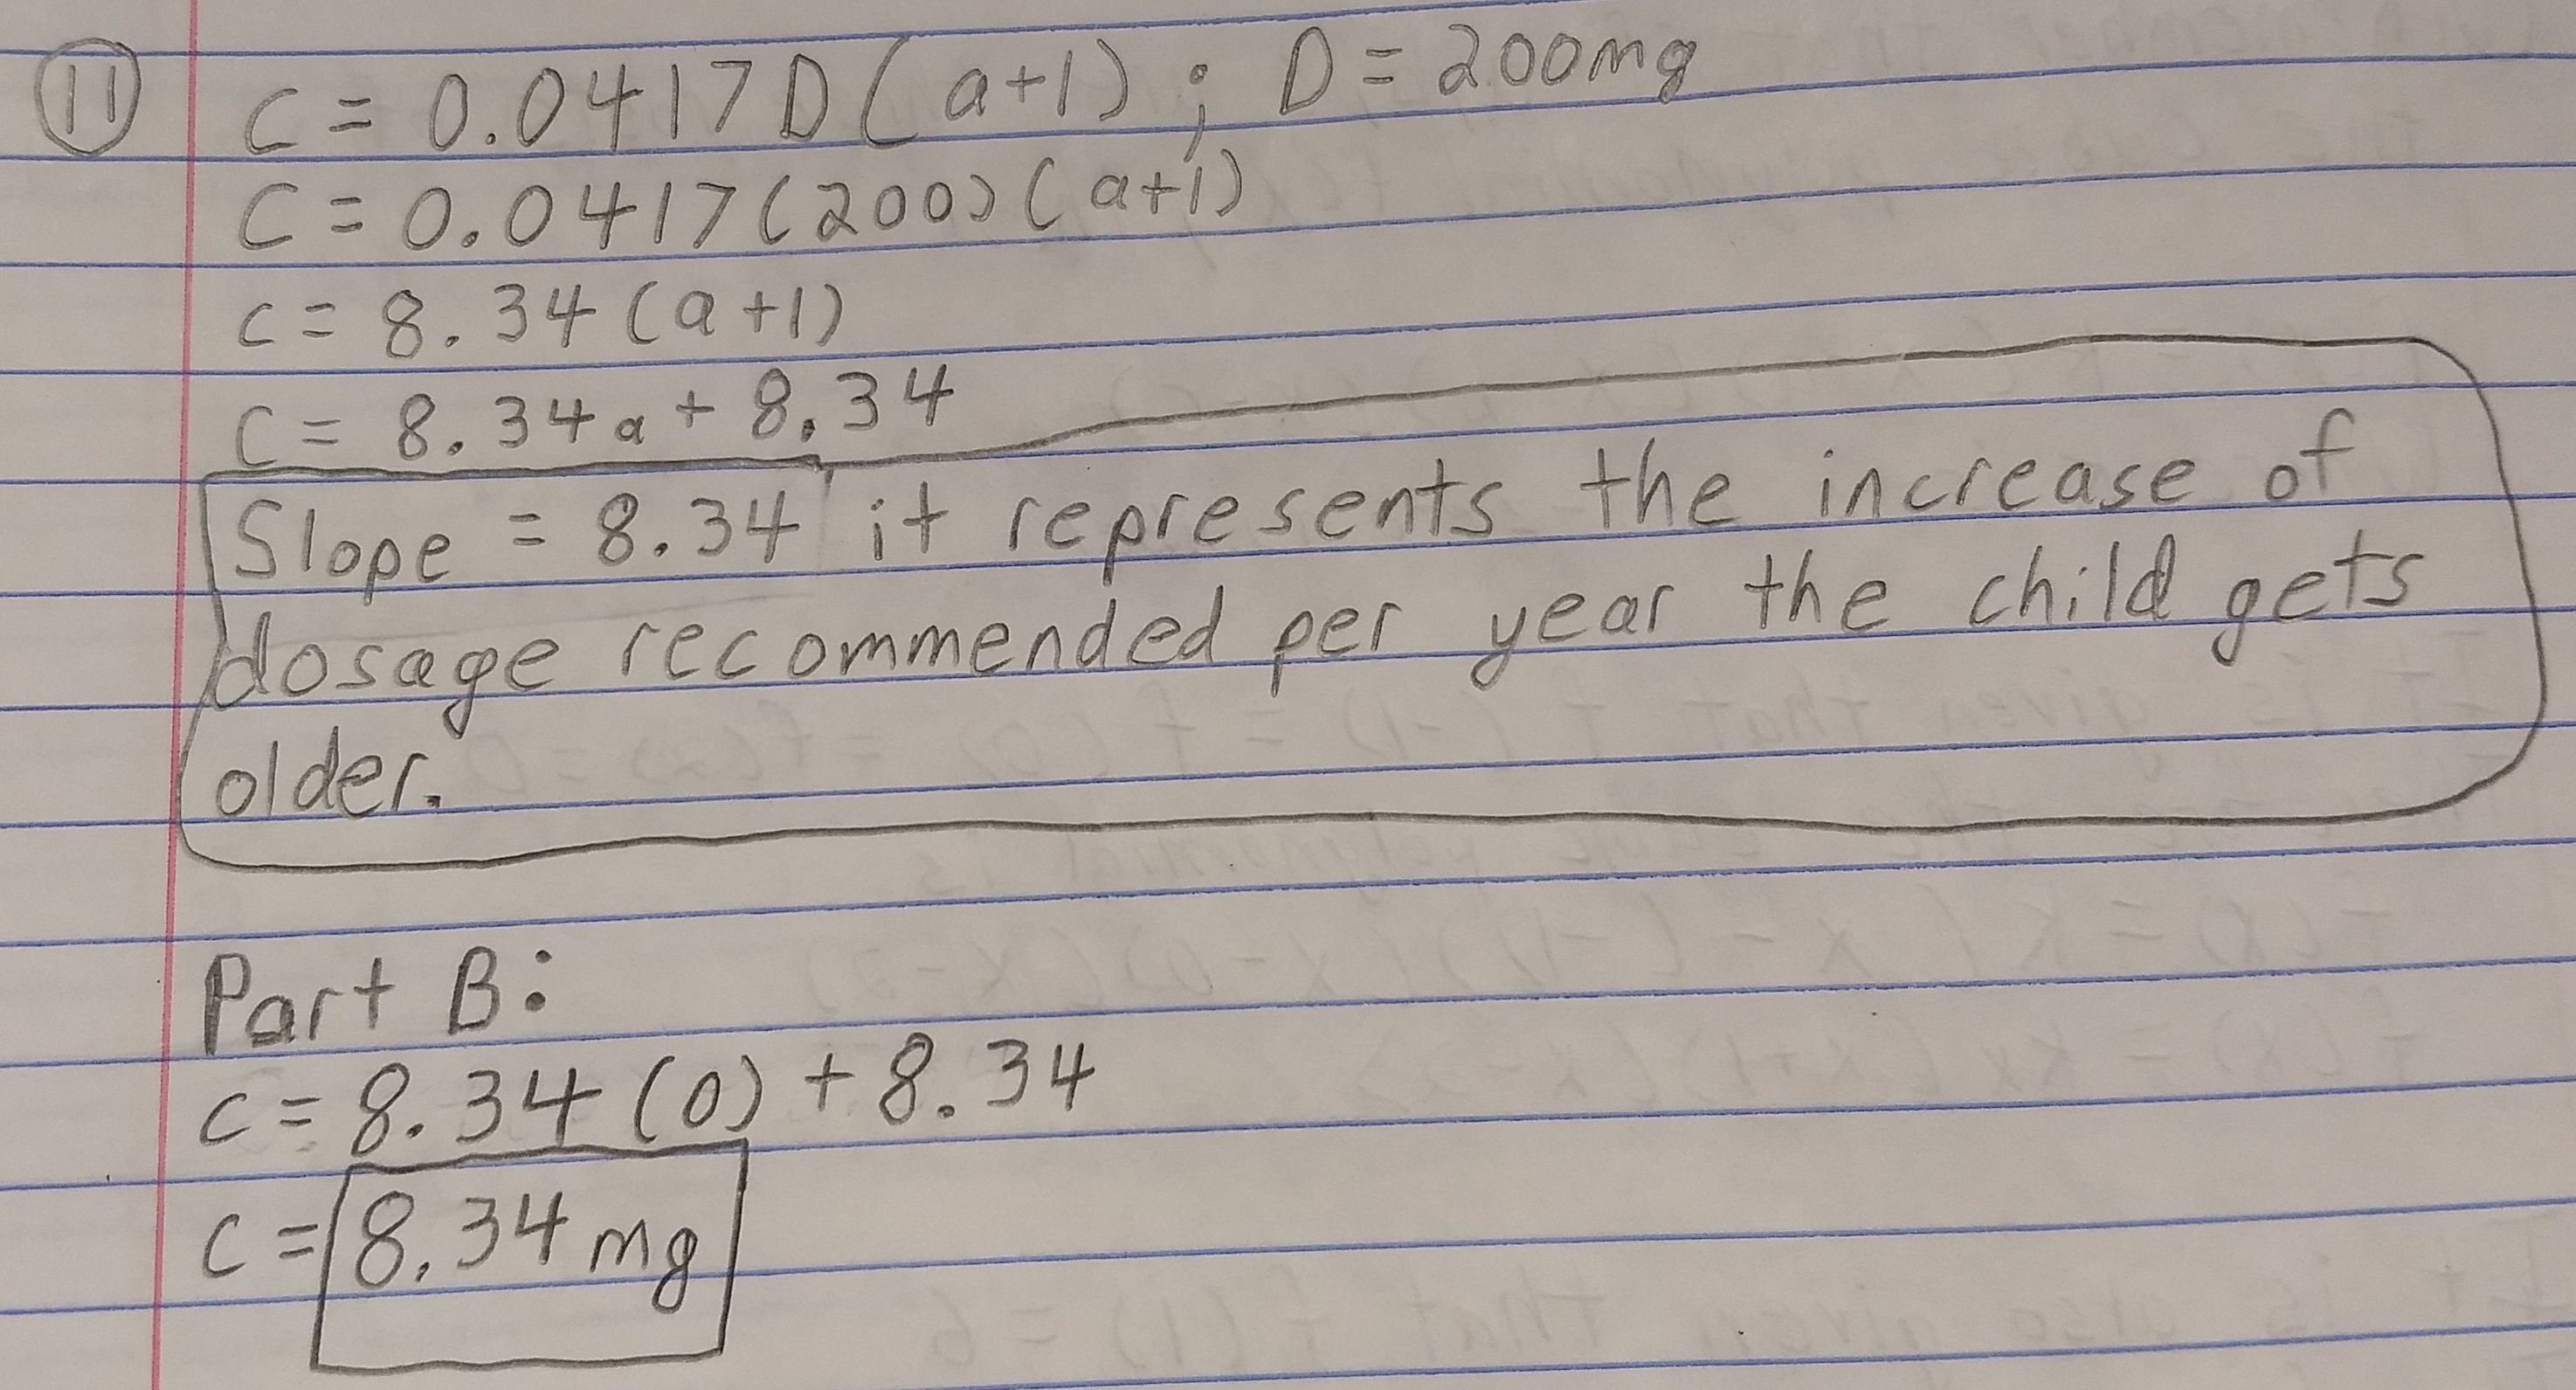 11 C = 0.0417D(a+1); D = 200mg
C = 0.0417(200)(a+1)
C = 8.34(a+1)
C = 8.34a + 8.34
Slope = 8.34 it represents the increase of
dosage recommended per year the child gets
older.
Part B:
C = 8.34(0) + 8.34
C = 8.34mg